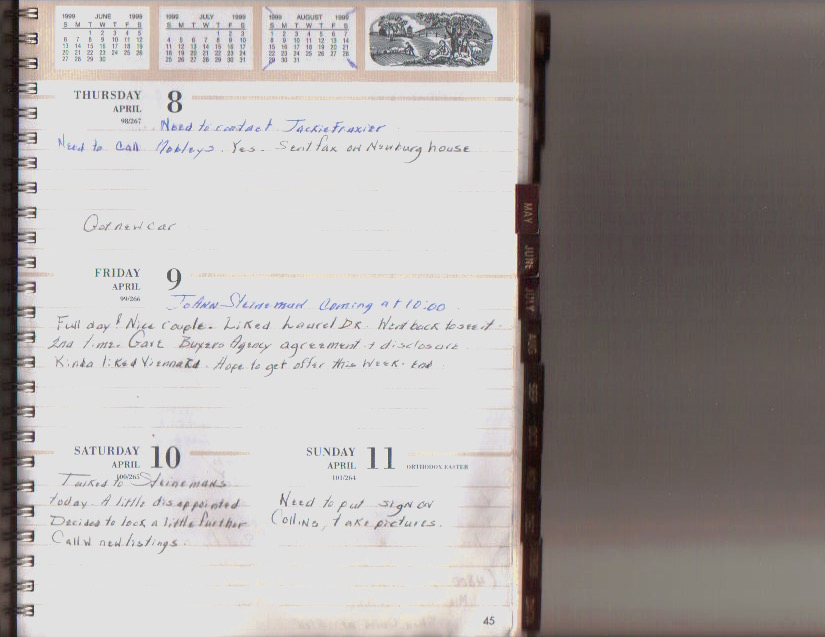 1999 JUNE 1999
S M T W T F S
1 2 3 4 5
6 7 8 9 10 11 12
13 14 15 16 17 18 19
20 21 22 23 24 25 26
27 28 29 30
1999 JULY 1999
S M T W T F S
1 2 3
4 5 6 7 8 9 10
11 12 13 14 15 16 17
18 19 20 21 22 23 24
25 26 27 28 29 30 31
1999 AUGUST 1999
S M T W T F S
1 2 3 4 5 6 7
8 9 10 11 12 13 14
15 16 17 18 19 20 21
22 23 24 25 26 27 28
29 30 31
THURSDAY 8
APRIL
98/267
Need to contact Jackie Fraxier
Need to Call Mobleys. Yes. Sent fax on Newburg house
Got new car
FRIDAY 9
APRIL
99/266
JoAnn Steineman Coming at 10:00
Full day! Nice couple. Liked Laurel DR. Went back to see it
2nd time. Gave Buyers Agency agreement + disclosure
Kinda liked Viennard. Hope to get offer this week-end
SATURDAY 10
APRIL
100/265
Talked to Steinemans
today. A little disappointed
Decided to look a little further
Call w new listings.
SUNDAY 11
APRIL ORTHODOX EASTER
101/264
Need to put sign on
Collins, take pictures.
45
MAY
JUNE
JULY
AUG
SEP
OCT